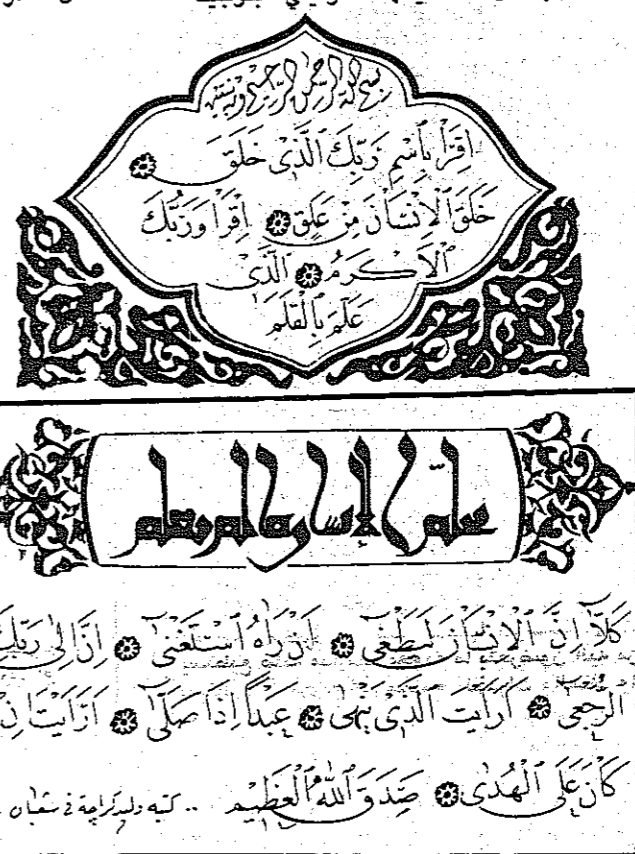 بسم الله الرحمن الرحيم وبه نستعين
اِقْرَأْ بِاسْمِ رَبِّكَ الَّذِى خَلَقَ
خَلَقَ الْاِنْسَانَ مِنْ عَلَقٍ اِقْرَأْ وَرَبُّكَ
الْاَكْرَمُ الَّذِى
عَلَّمَ بِالْقَلَمِ
علم الإنسان ما لم يعلم
كَلَّا اِنَّ الْاِنْسَانَ لَيَطْغٰى اَنْ رَاٰهُ اسْتَغْنٰى اِنَّ اِلٰى رَبِّكَ
الرُّجْعٰى اَرَاَيْتَ الَّذِى يَنْهٰى عَبْدًا اِذَا صَلّٰى اَرَاَيْتَ اِنْ
كَانَ عَلَى الْهُدٰى صَدَقَ اللّٰهُ الْعَظِيم .. كتبه وليد كراجة في شعبان